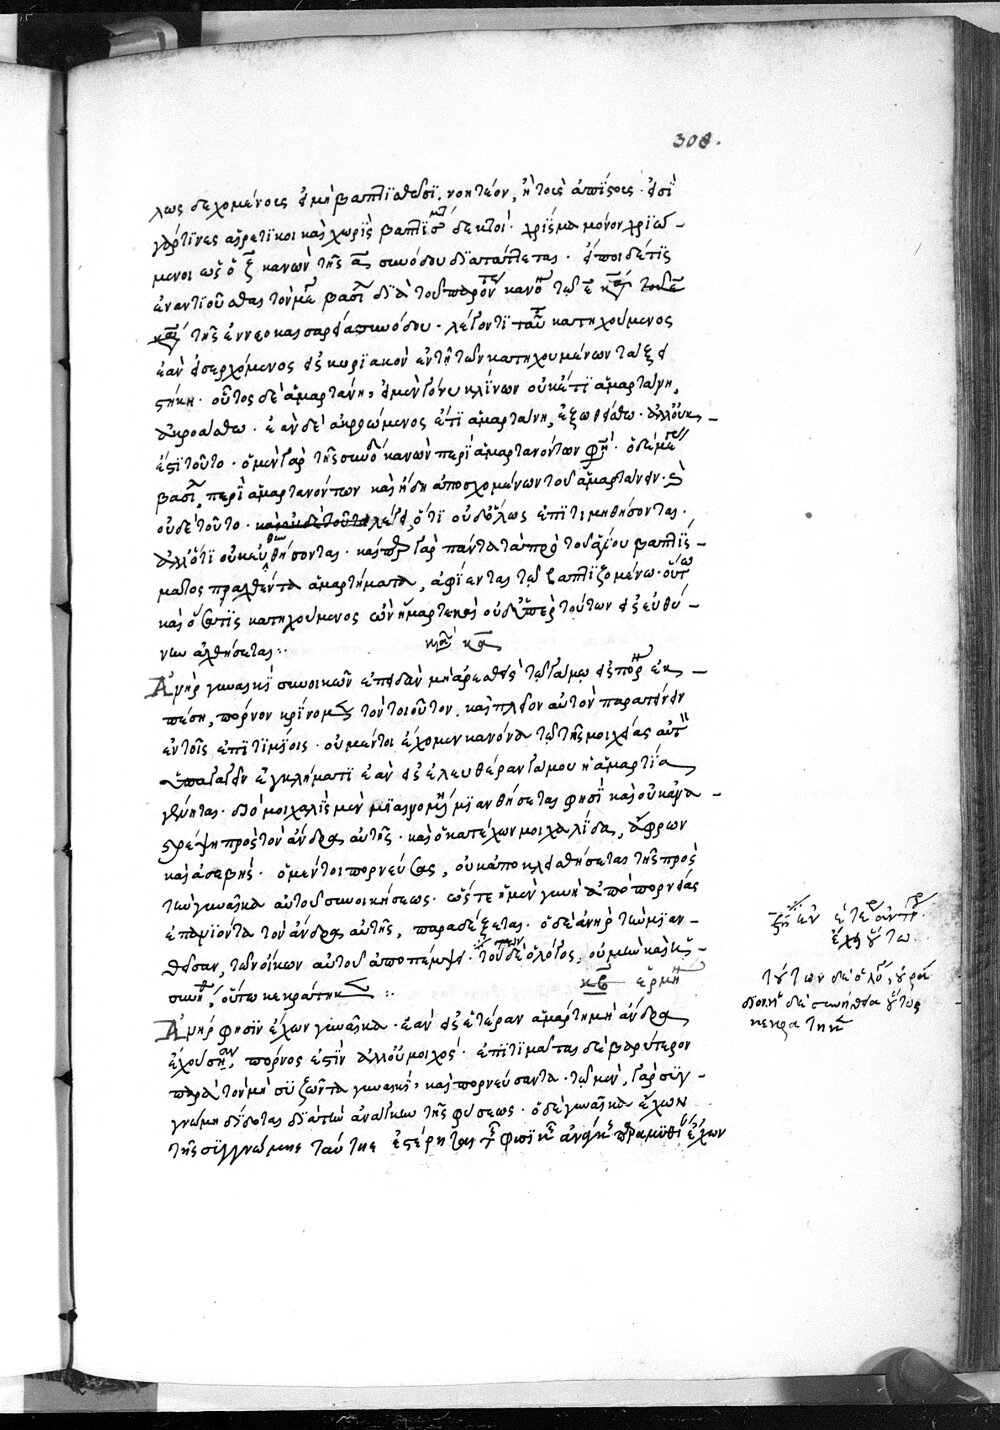 308.
λως δεχομένοις εἰ μὴ βαπτισθεῖσι, νοητέον, ἢ τοῖς ἀπίστοις· εἰσὶ
γάρ τινες αἱρετικοὶ καὶ χωρὶς βαπτίσμα δεκτοί· χρίσμα μόνον χριό-
μενοι ὡς ὁ ζ κανὼν τῆς α συνόδου διαπλάττεται·
ἐναντιοῦσθαι τὸν μέγ βασίλ διὰ τοῦ παρόν κανό τῷ ε
τῆς ἐν νεοκαισαρεία συνόδου· λέγοντι ταῦ κατηχούμενος
ἐὰν εἰσερχόμενος εἰς κυριακὸν ἐν τῇ τῶν κατηχουμένων τάξει
στήκῃ· οὗτος δὲ ἁμαρτάνῃ, εἰ μὲν γόνυ κλίνων οὐκέτι ἁμαρτάνῃ,
ἀκροάσθω· ἐὰν δὲ ἀκροώμενος ἔτι ἁμαρτάνῃ, ἐξωθείσθω· ἀλλ' οὐκ
ἔστι τοῦτο· ὁ μὲν γὰρ τῆς συνόδ κανὼν περὶ ἁμαρτανόντων φη· ὁ δὲ μέγ
βασίλ, περὶ ἁμαρτανόντων καὶ ἤδη ἀποσχομένων τοῦ ἁμαρτάνειν·
οὐδὲ τοῦτο· καὶ οὐδὲ τοῦτο λέγει, ὅτι οὐδόλως ἐπιτιμηθήσονται·
ἀλλ' ὅτι οὐκ εὐθυνθήσονται· καὶ γὰρ πάντα τὰ πρὸ τοῦ ἁγίου βαπτίσ-
ματος πραχθέντα ἁμαρτήματα, ἀφίενται τῷ βαπτιζομένῳ· οὕτω
καὶ ὅστις κατηχούμενος ὢν ἥμαρτεν καὶ οὐδ' ὑπὲρ τούτων εἰς εὐθύ-
νων ἀχθήσεται:·
κα
Ἀνὴρ γυναικὶ συνοικῶν ἐπειδὰν μὴ ἀρεσθεὶς τῷ γάμῳ εἰς πορ ἐκ-
πέσῃ, πόρνον κρίνομεν τὸν τοιοῦτον, καὶ πλεῖον αὐτὸν παρατείνειν
ἐν τοῖς ἐπιτιμίοις· οὐ μέντοι ἔχομεν κανόνα τῷ τῆς μοιχείας αὐτ
ὑπαγαγεῖν ἐγκλήματι ἐὰν εἰς ἐλευθέραν γάμου ἡ ἁμαρτία
γένηται· διὸ μοιχαλὶς μὲν μιαινομένη μιανθήσεται φησὶ καὶ οὐκ ἀνα-
στρέψῃ πρὸς τὸν ἄνδρα αὐτῆς· καὶ ὁ κατέχων μοιχαλίδα, ἄφρων
καὶ ἀσεβής· ὁ μέντοι πορνεύσας, οὐκ ἀποκλεισθήσεται τῆς πρὸς
τὴν γυναῖκα αὐτοῦ συνοικήσεως· ὥστε ἡ μὲν γυνὴ ἀπὸ πορνείας
ἐπανιόντα τὸν ἄνδρα αὐτῆς, παραδέξεται· ὁ δὲ ἀνὴρ τὴν μιαν-
θεῖσαν, τῶν οἴκων αὐτοῦ ἀποπέμψει· τούτων δὲ ὁ λόγος, οὐ
συνή, οὕτω κεκράτηκεν:·
κβ ἑρμη
Ἀνὴρ φησὶν ἔχων γυναῖκα· ἐὰν εἰς ἑτέραν ἁμαρτήσῃ μὴ ἄνδρα
ἔχουσαν, πόρνος ἐστὶν ἀλλ' οὐ μοιχός· ἐπιτιμᾶται δὲ βαρύτερον
παρὰ τὸν μὴ συζῶντα γυναικί, καὶ πορνεύσαντα· τῷ μὲν γὰρ συγ-
γνώμη δίδοται διὰ τὴν ἀνάγκην τῆς φύσεως· ὁ δὲ γυναῖκα ἔχων
τῆς συγγνώμης ταύτης ἐστέρηται φυσικ ἀνάγκ παραμυθί ἔχων
ἔχει οὕτω
τούτων δὲ ὁ λόγ, οὐ ῥά
διος· ἡ δὲ συνήθεια οὕτως
κεκράτηκεν